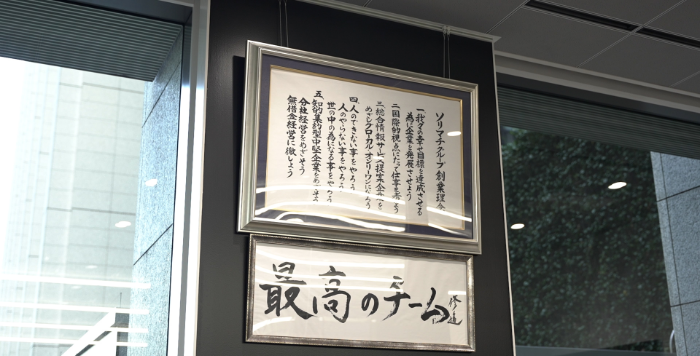 ソリマチグループ 創業理念
一.我々の幸せ目標を達成させる
為に企業を発展させよう
二.国際的視点にたって仕事を考えよう
三.総合情報サービス提案企業を
めざしグローカルオンリーワンになろう
四.人のできない事をやろう
人のやらない事をやろう
世の中の為になる事をやろう
五.知的集約型中堅企業をめざそう
分社経営をめざそう
無借金経営に徹しよう
最高のチーム